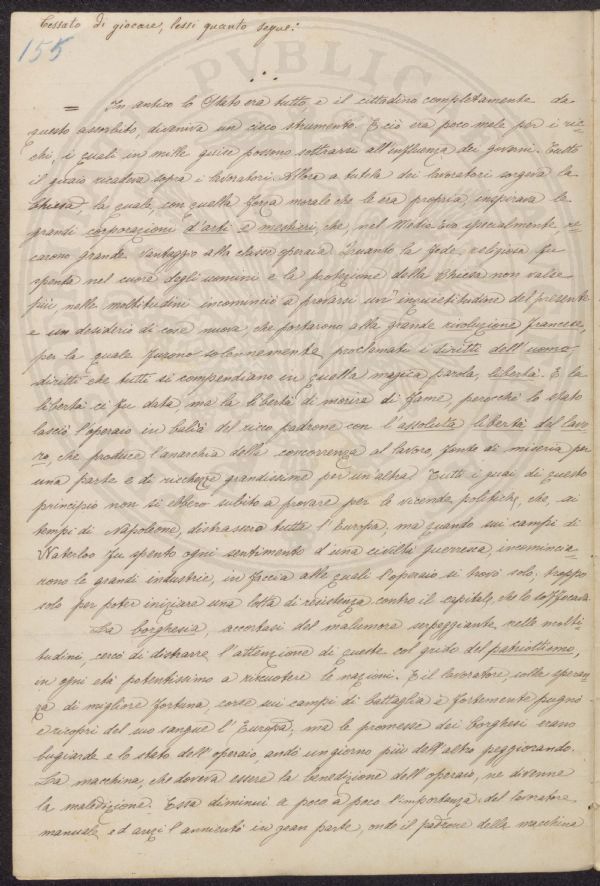 Cessato di giocare, lessi quanto segue:
155
= In antico lo Stato era tutto, e il cittadino completamente da
questo assorbito, diveniva un cieco strumento. E ciò era poco male per i ric-
chi, i quali in mille guise possono sottrarsi all'influenza dei governi. Tutto
il guaio ricadeva sopra i lavoratori. Allora a tutela dei lavoratori sorgeva la
Chiesa, la quale, con quella forza morale che le era propria, inspirava le
grandi corporazioni d'arti e mestieri, che, nel Medio Evo specialmente, re-
carono grande vantaggio alla classe operaia. Quanto la fede religiosa fu
spenta nel cuore degli uomini e la protezione della Chiesa non valse
più, nelle moltitudini incominciò a provarsi un'inquietitudine del presente
e un desiderio di cose nuove, che portarono alla grande rivoluzione francese,
per la quale furono solennemente proclamati i diritti dell'uomo
diritti che tutti si compendiano in quella magica parola, libertà. E la
libertà ci fu data, ma la libertà di morire di fame, perocchè lo stato
lasciò l'operaio in balìa del ricco padrone con l'assoluta libertà del lavo-
ro, che produce l'anarchia della concorrenza al lavoro, fonte di miseria per
una parte e di ricchezze grandissime per un'altra. Tutti i guai di questo
principio non si ebbero subito a provare per le vicende politiche, che, ai
tempi di Napoleone, distrassero tutta l'Europa, ma quando sui campi di
Waterloo fu spento ogni sentimento d'una civiltà guerresca, incomincia-
rono le grandi industrie, in faccia alle quali l'operaio si trovò solo: troppo
solo per poter iniziare una lotta di resistenza contro il capitale, che lo soffocava.
La borghesia, accortasi del malumore serpeggiante nelle molti-
tudini, cercò di distrarre l'attenzione di queste col grido del patriottismo,
in ogni età potentissimo a riscuotere le nazioni. E il lavoratore colla speran-
za di migliore fortuna, corse sui campi di battaglia e fortemente pugnò
e ricoprì del suo sangue l'Europa, ma le promesse dei borghesi erano
bugiarde e lo stato dell'operaio, andò un giorno più dell'altro peggiorando.
La macchina, che doveva essere la benedizione dell'operaio, ne divenne
la maledizione. Essa diminuì a poco a poco l'importanza del lavoratore
manuale, ed anzi l'annientò in gran parte, onde il padrone della macchina
PVBLIC